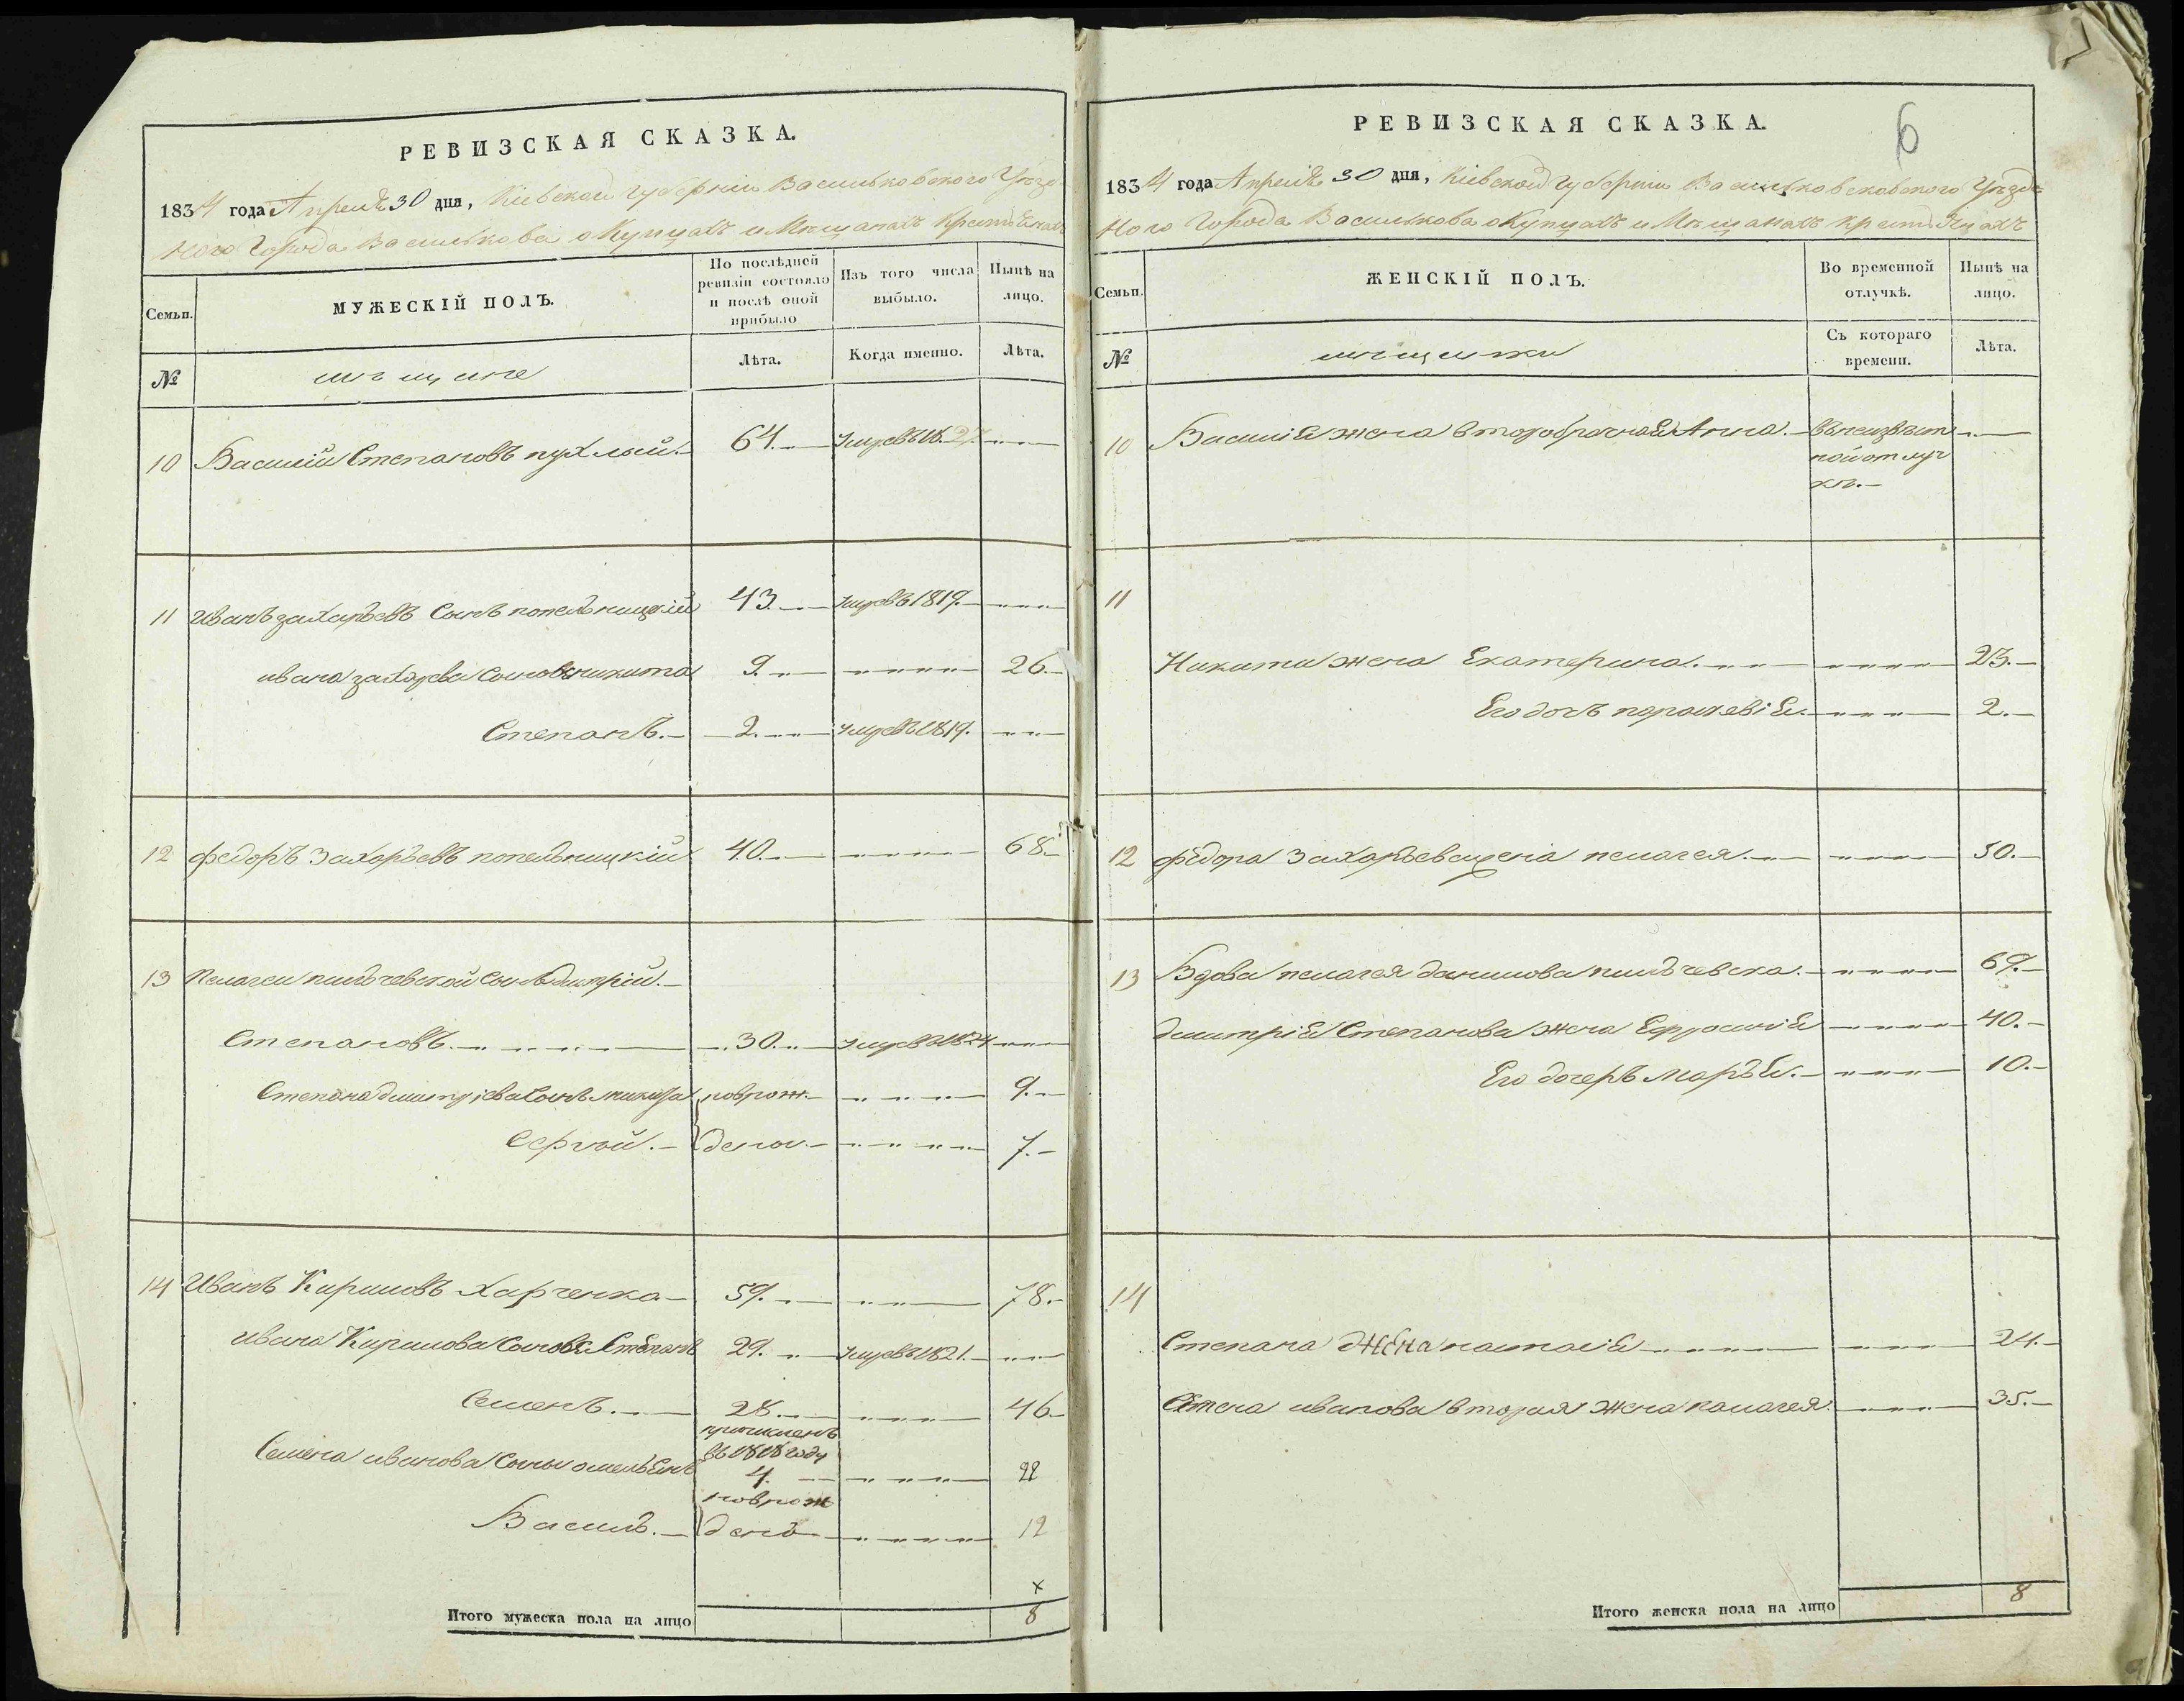 РЕВИЗСКАЯ СКАЗКА.
1834 года Апреля 30 дня, Кіевской губерніи Васильковского Уезд
ного Города Василькова о Купцахъ и Мѣщанахъ
Семьи.
МУЖЕСКІЙ ПОЛЪ.
По послѣдней ревизіи состояло и послѣ оной прибыло
Изъ того числа выбыло.
Нынѣ на лицо.
№
мѣщане
Лѣта.
Когда именно.
Лѣта.
10 Василій Степановъ пухлый. 64. умре въ 18
11 Иванъ захарьевъ сынъ попельницкій 43. умре въ 1819.
ивана захарева сыновя никита 9. 26.
Степанъ. 2. умре въ 1819.
12 федоръ Захарьевъ попельницкій 40. 68.
13 Пелагеи сынъ дмитрій.
Степановъ. 30. умре въ 1824
Степана дмитріева сынъ новрож 9.
Сергѣй. дены. 7.
14 Иванъ Кириловъ Харченко 59. 78.
Ивана Кирилова сыновя Степанъ 29. умре въ 1821.
Семенъ. 28. 46.
причисленъ
въ 1818 году
Семена иванова сыны омельянъ 4. 22
новрож
Василь. денъ 12
х
Итого мужеска пола на лицо 8
РЕВИЗСКАЯ СКАЗКА.
6
1834 года Апреля 30 дня, Кіевской губерніи Васильковсковского Уезд
ного Города Василькова о Купцахъ и Мѣщанахъ
Семьи.
ЖЕНСКІЙ ПОЛЪ.
Во временной отлучкѣ.
Нынѣ на лицо.
№
мѣщанки
Съ котораго времени.
Лѣта.
10 Василія жена второбрачная Анна. въ неизвѣст
ной отлуч
кѣ.
11
Никита жена Екатерина. 23.
Его дочь парасквія. 2.
12 федора Захарьева жена пелагея. 50.
13 Вдова пелагея данилова 69.
дмитрія Степанова жена Ефросинія 40.
Его дочеръ маръя. 10.
14
Степана жена настасія 24.
иванова вторая жена палагея. 35.
Итого женска пола на лицо 8